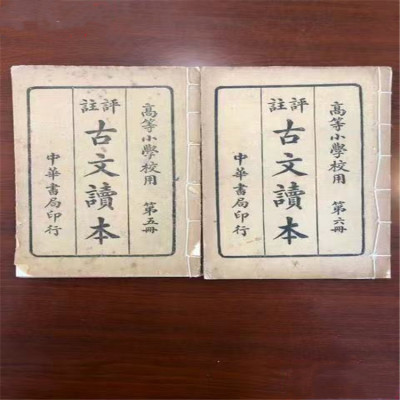 高等小學校用 第五冊
評註
古文讀本
中華書局印行
高等小學校用 第六冊
評註
古文讀本
中華書局印行